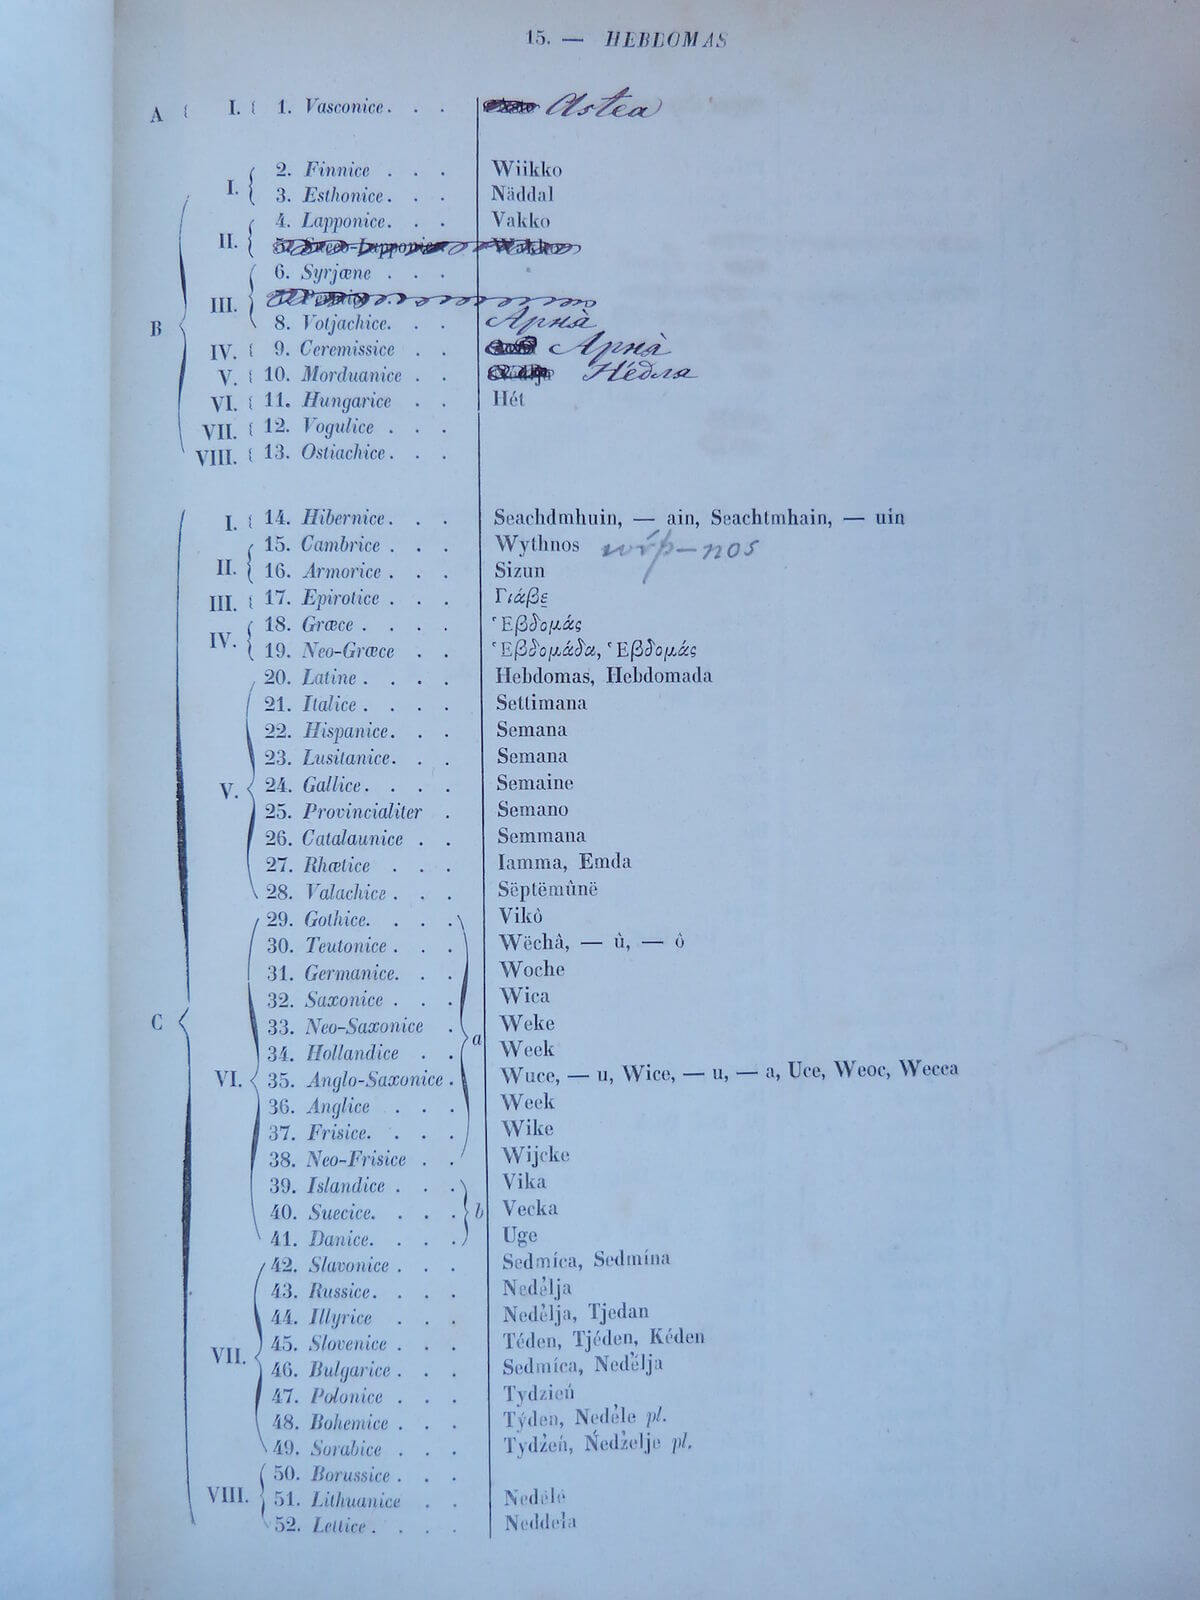 15. — HEBDOMAS
A I. 1. Vasconice. . . Astea
2. Finnice . . . Wiikko
I.
3. Esthonice. . . Näddal
4. Lapponice. . . Vakko
II.
5. Sueco-Lapponice Wakko
6. Syrjæne . . .
III.
B
8. Votjachice. . . Арнà
IV. 9. Ceremissice . . Арнà
V. 10. Morduanice . . Не́для
VI. 11. Hungarice . . Hét
VII. 12. Vogulice . . .
VIII. 13. Ostiachice. . .
I. 14. Hibernice. . . Seachdmhuin, — ain, Seachtmhain, — uin
15. Cambrice . . . Wythnos
II.
16. Armorice . . . Sizun
III. 17. Epirotice . . . Γιάβε
18. Græce . . . . Ἑβδομάς
IV.
19. Neo-Græce . . Ἑβδομάδα, Ἑβδομάς
20. Latine . . . . Hebdomas, Hebdomada
21. Italice . . . . Settimana
22. Hispanice. . . Semana
23. Lusitanice. . . Semana
V. 24. Gallice. . . . Semaine
25. Provincialiter . Semano
26. Catalaunice . . Semmana
27. Rhætice . . . Iamma, Emda
28. Valachice . . . Sëptëmûnë
29. Gothice. . . . Vikò
30. Teutonice . . . Wëchâ, — û, — ô
31. Germanice. . . Woche
32. Saxonice . . . Wica
C
33. Neo-Saxonice . Weke
a
34. Hollandice . . Week
VI. 35. Anglo-Saxonice . Wuce, — u, Wice, — u, — a, Uce, Weoc, Wecca
36. Anglice . . . Week
37. Frisice. . . . Wike
38. Neo-Frisice . . Wijcke
39. Islandice . . . Vika
40. Suecice. . . . b Vecka
41. Danice. . . . Uge
42. Slavonice . . . Sedmíca, Sedmína
43. Russice. . . . Nedělja
44. Illyrice . . . Nedělja, Tjedan
45. Slovenice . . . Téden, Tjéden, Kéden
VII.
46. Bulgarice . . . Sedmíca, Nedělja
47. Polonice . . . Tydzień
48. Bohemice . . . Týden, Neděle pl.
49. Sorabice . . . Tydżeń, Ńedżelje pl.
50. Borussice . . .
VIII. 51. Lithuanice . . Nedėlė
52. Lettice . . . . Neddeła